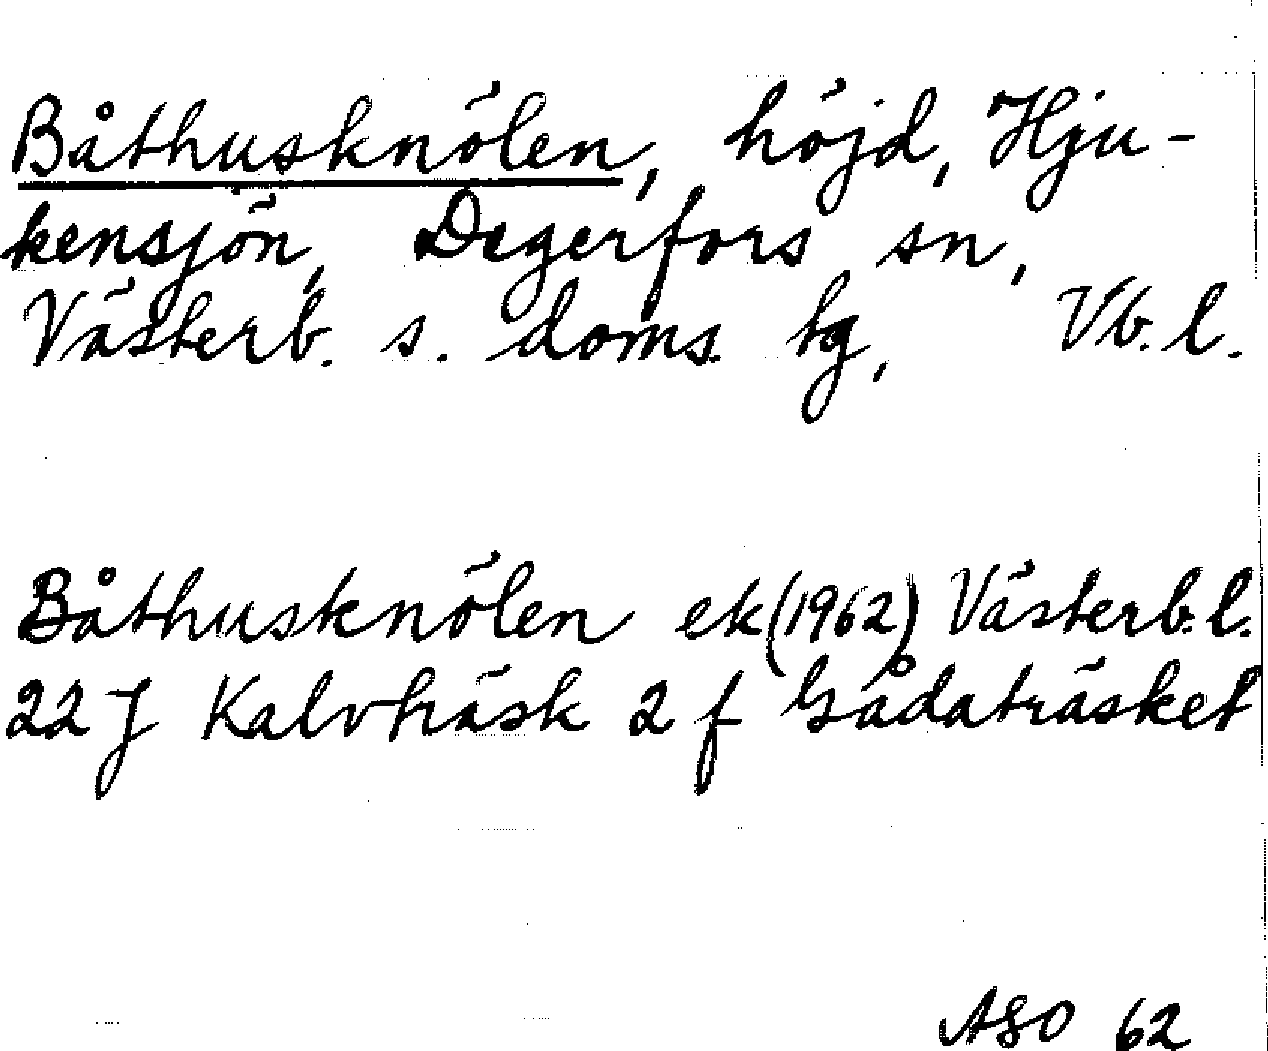 Båthusknölen, höjd, Hju-
kensjön, Degerfors sn,
Västerb. s. doms. tg, Vb. l.
Båthusknölen ek (1962) Västerb. l.
22 J Kalvträsk 2 f Gådaträsket
ASO 62